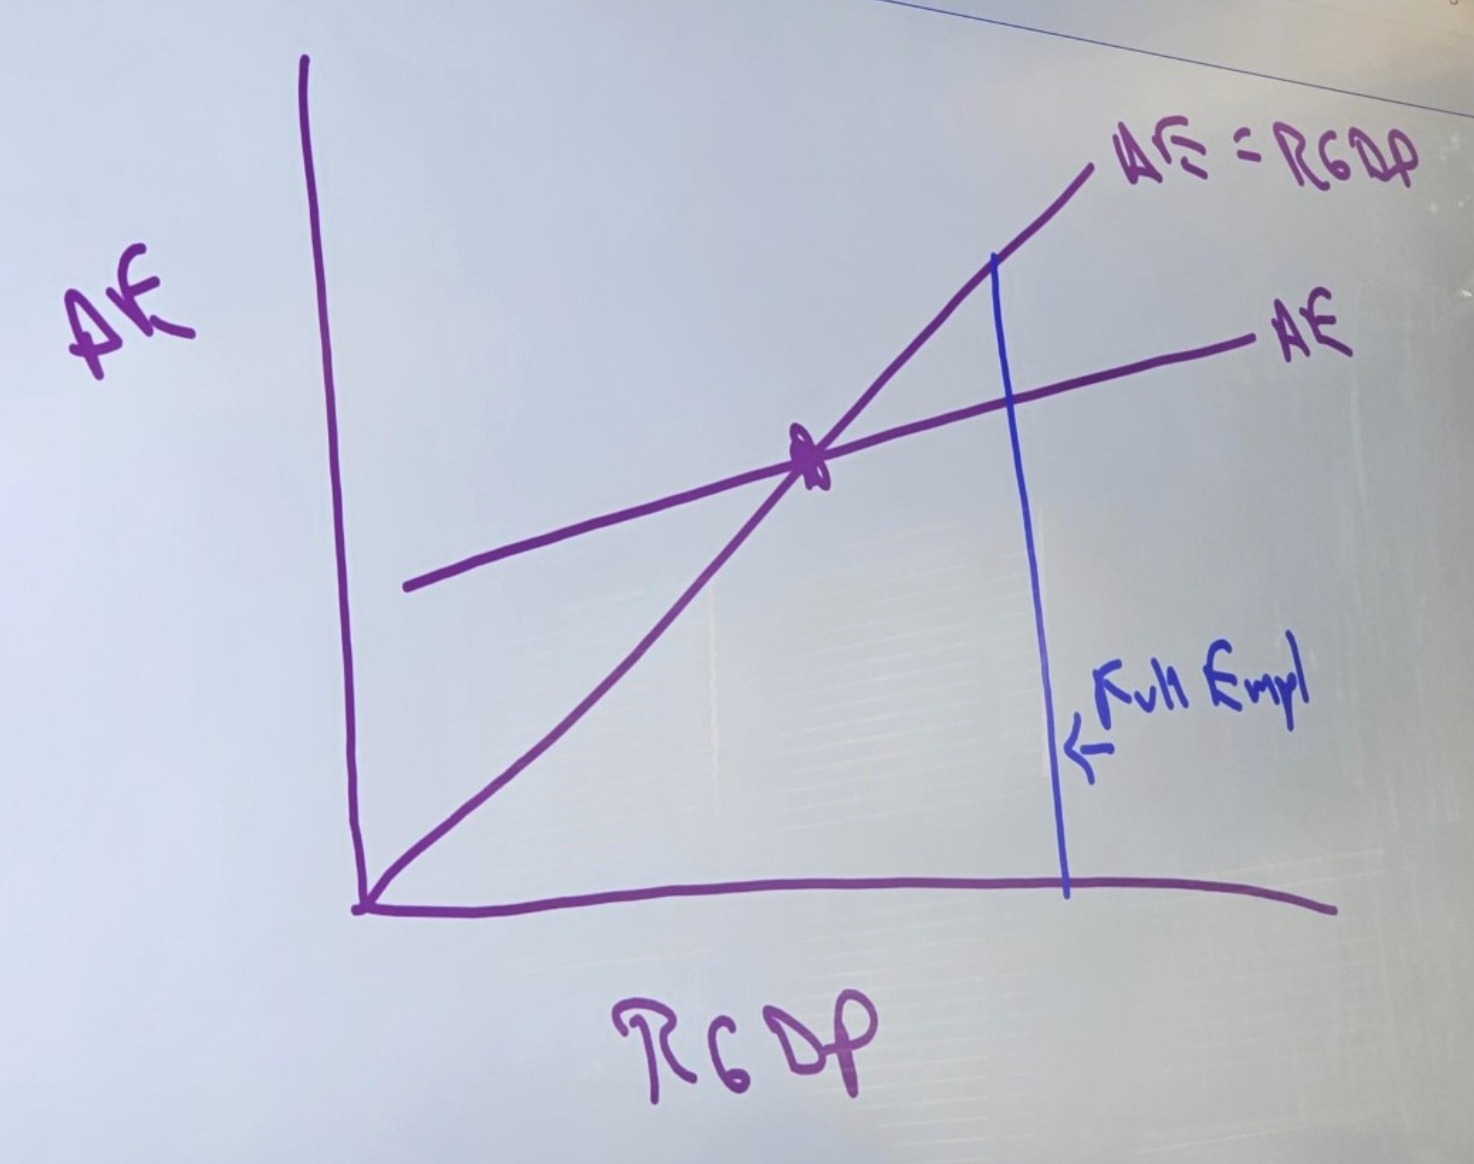 AE = RGDP
AE
AE
← Full Empl
RGDP